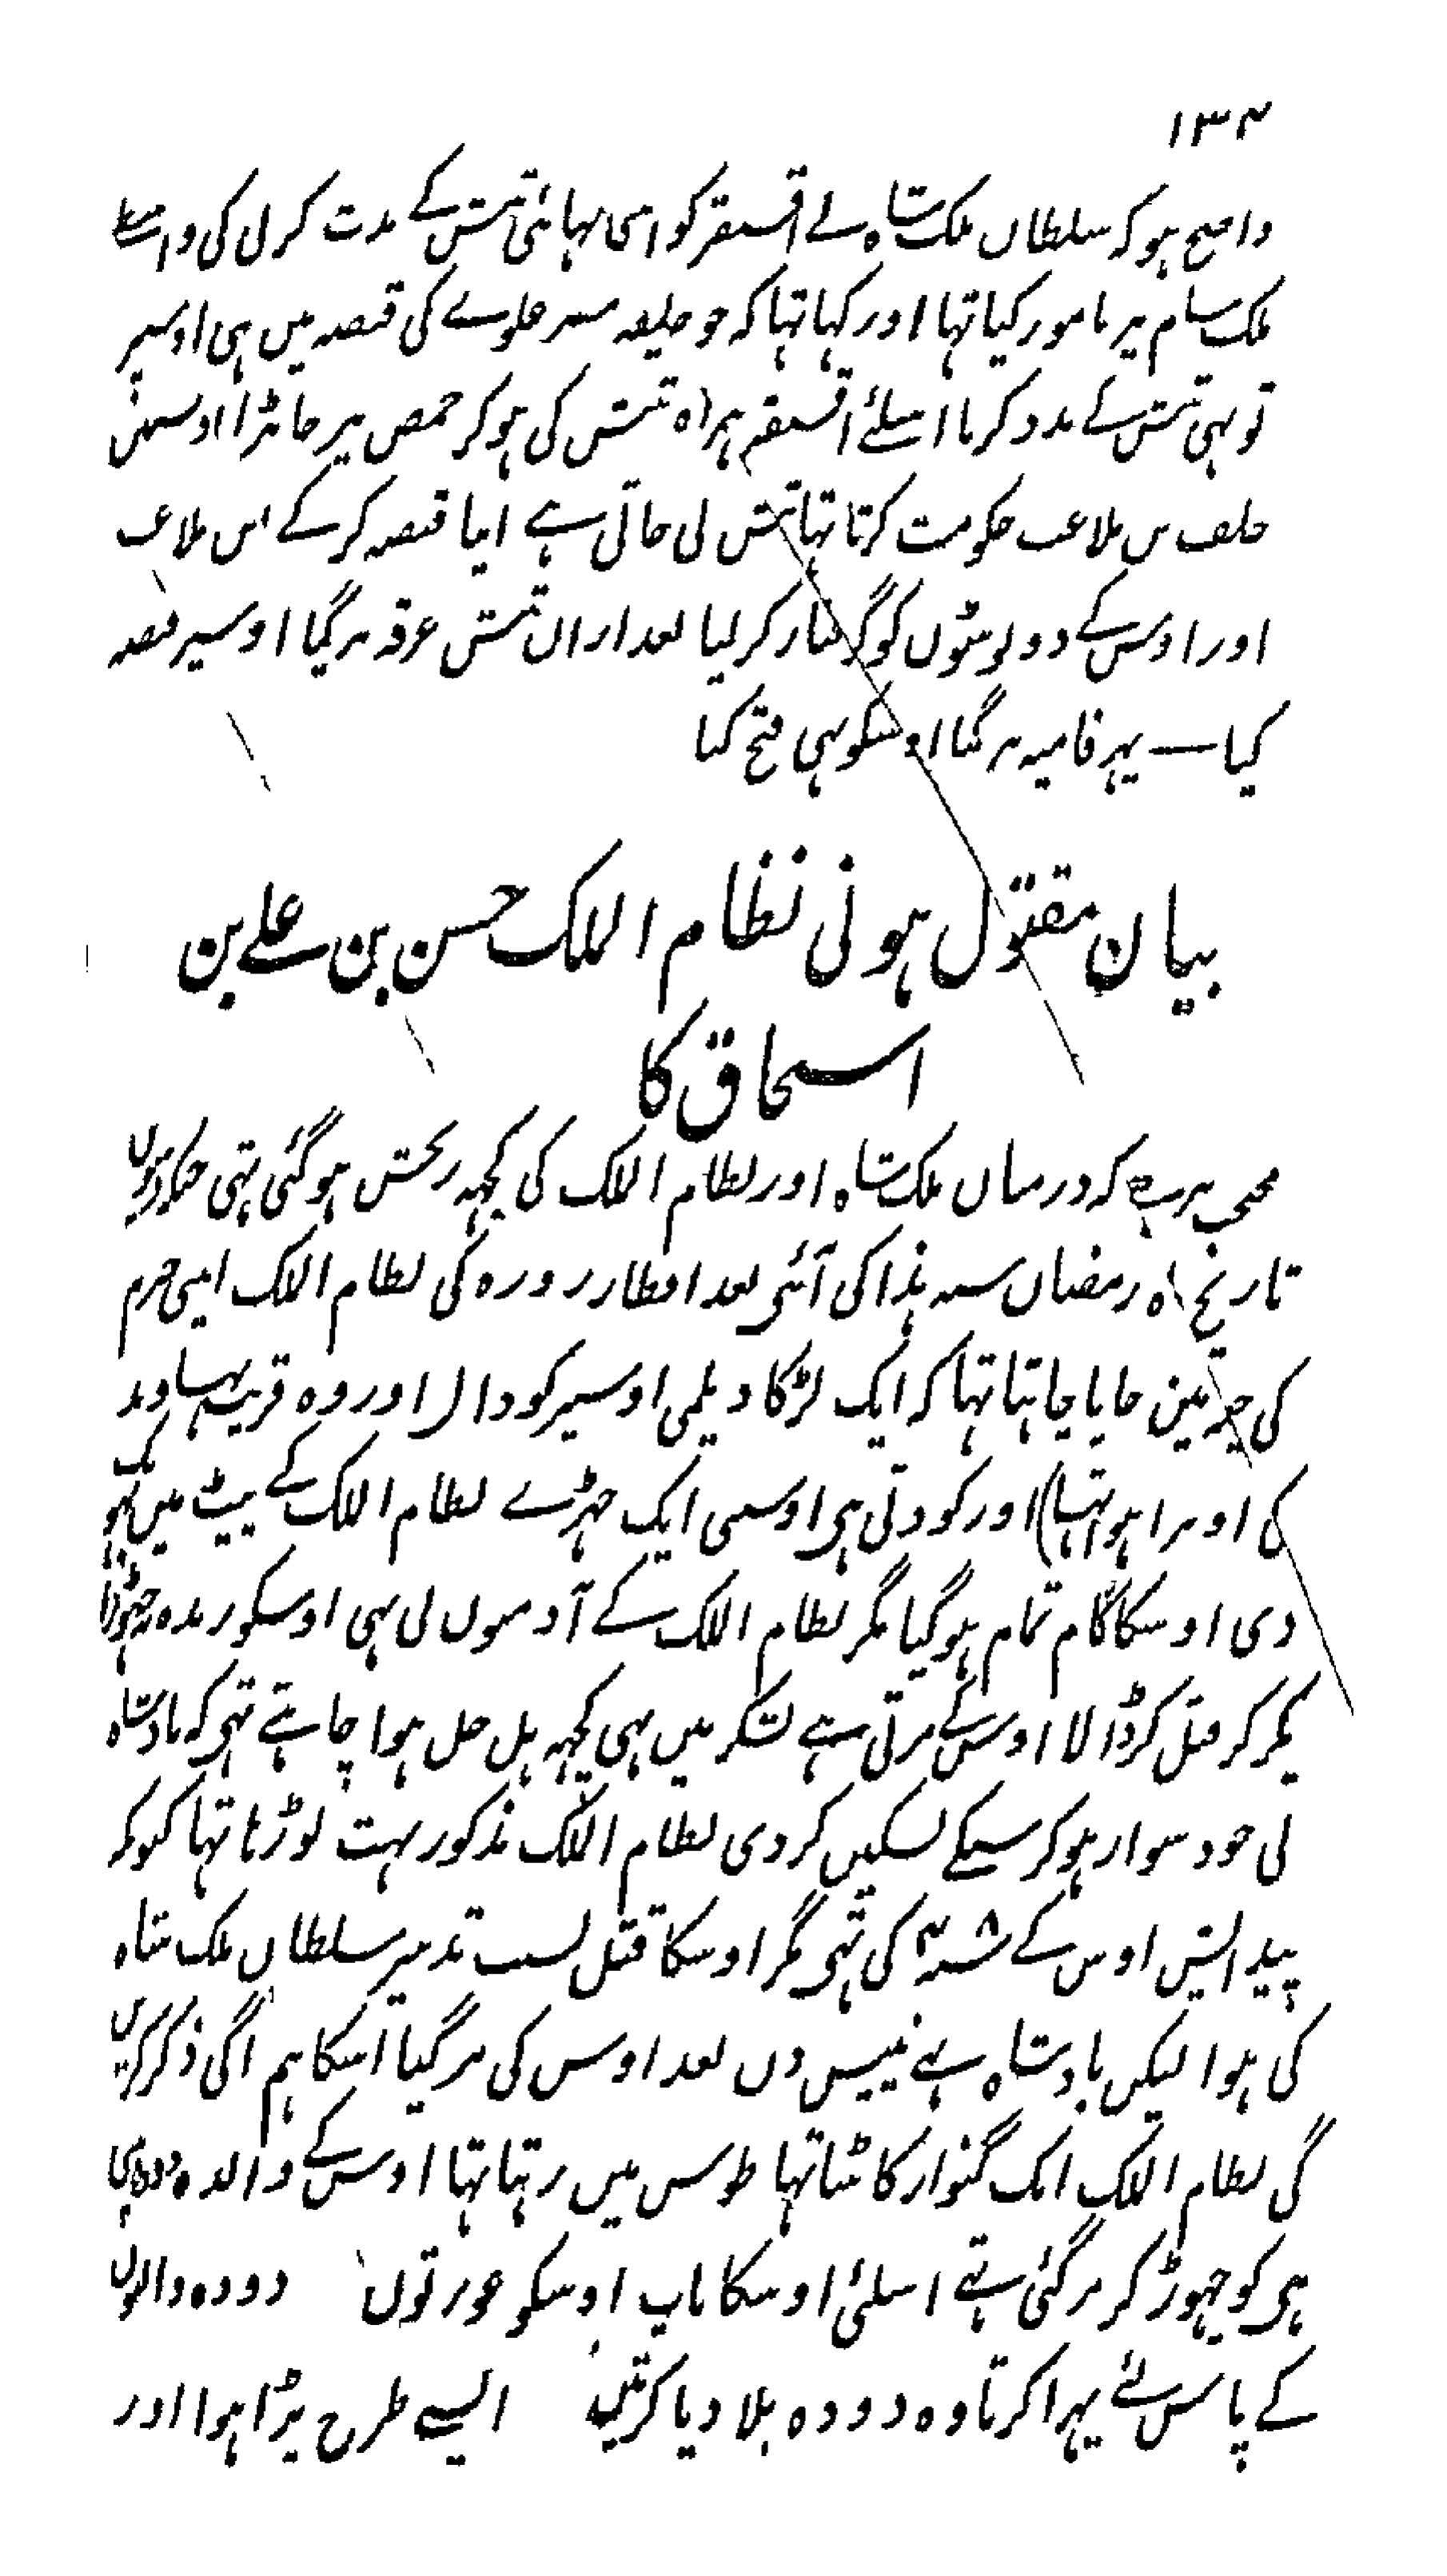 ۱۳۴
واضح ہو کہ سلطان ملک شاہ نے اقسنقر کو اپنی بہائی تتش کے مدت کرنی کی واسطے
ملک شام پر مامور کیا تہا اور کہا تہا کہ جو خلیفہ مصر علوے کی قبضہ میں ہی اوسپر
تو بہی تتش کے مدد کرنا اسلئے اقسنقر ہمراہ تتش کی ہو کر حمص پر جا پڑا اوسمین
خلف بن ملاعب حکومت کرتا تہا تتش نی جاتی ہے اپنا قبضہ کر کے اس ملاعب
اور اوس کے دونو بیٹوں کو گرفتار کر لیا بعد ازاں تتش عرقہ پر گیا اوسپر قبضہ
کیا — پہر فامیہ پر گیا اوسکو بہی فتح کیا
بیان مقتول ہونی نظام الملک حسن بن علے بن
اسحاق کا
مخفی نرہے کہ درمیاں ملک شاہ اور نظام الملک کی کچہہ رنجش ہو گئی تہی جبکہ دسویں
تاریخ ماہ رمضان سنہ ہذا کی آئی بعد افطار روزہ کی نظام الملک اپنی حرم
کی خیمہ مین جایا چاہتا تہا کہ ایک لڑکا دیلمی اوسپر کودا (اور وہ قریب نہاوند
کی اوترا ہوا تہا) اور کودتی ہی اوسی ایک چہرے نظام الملک کے پیٹ میں بہونک
دی اوسکا کام تمام ہو گیا مگر نظام الملک کے آدمیوں نی بہی اوسکو زندہ نچہوڑا
پکڑ کر قتل کر ڈالا اوس کے مرتی سے لشکر میں بہی کچہہ ہل چل ہوا چاہتے تہی کہ بادشاہ
نی خود سوار ہو کر سبکے تسکیں کر دی نظام الملک مذکور بہت بوڑہا تہا کیونکہ
پیدایش اوس کے سنہ ۴۰۸ کی تہی مگر اوسکا قتل بسبب تدبیر سلطان ملک شاہ
کی ہوا لیکن بادشاہ بہی پینتیس دن بعد اوس کی مر گیا اسکا ہم اگی ذکر کریں
گی نظام الملک ایک گنوار کا بیٹا تہا طوس میں رہتا تہا اوس کے والدہ دودہ پیتی
ہی کو چہوڑ کر مر گئی تہے اسلئی اوسکا باپ اوسکو عورتوں دودہ والیوں
کے پاس لئے پہرا کرتا وہ دودہ پلا دیا کرتیں ایسے طرح بڑا ہوا اور